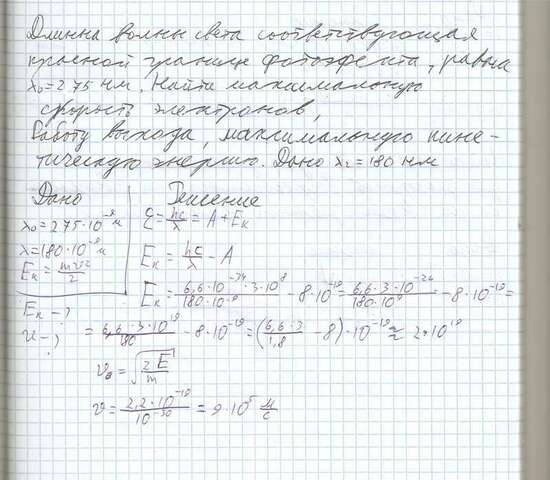 Длинна волны света соответствующая
красной границе фотоэффекта, равна
λ₀=275 нм, Найти максимальную
скорость электронов,
Работу выхода, максимальную кине-
тическую энергию. Дано λ₂=180 нм
Дано Решение
λ₀=275·10⁻⁹м
ε=hc/λ=A+Eₖ
λ=180·10⁻⁹м
Eₖ=mv²/2
Eₖ=hc/λ-A
Eₖ-?
v-?
Eₖ=6,6·10⁻³⁴·3·10⁸/180·10⁻⁹-8·10⁻¹⁹=6,6·3·10⁻²⁶/180·10⁻⁹-8·10⁻¹⁹=
=6,6·3·10⁻¹⁹/180-8·10⁻¹⁹=(6,6·3/1,8-8)·10⁻¹⁹≈2·10¹⁹
v₀=√2E/m
v=2,2·10⁻¹⁹/10⁻³⁰=9·10⁵ м/с